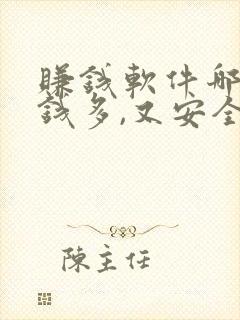 賺錢軟件哪
錢多,又安全
陳主任